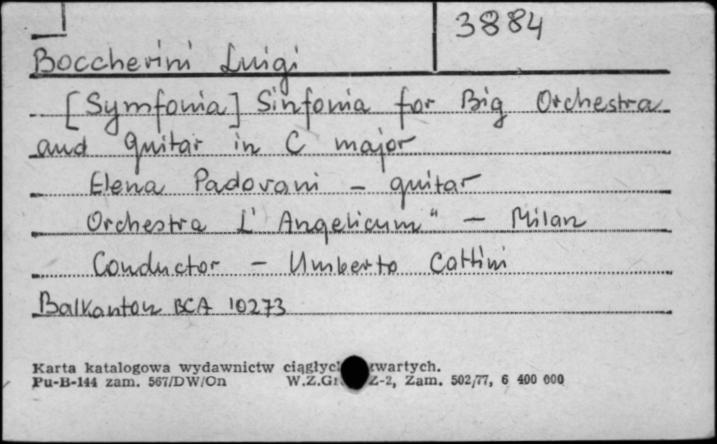 3884
Boccherini Luigi
[Symfonia] Sinfonia for Big Orchestra
and guitar in C major
Elena Padovani - guitar
Orchestra L' Angelicum" - Milan
Conductor - Umberto Cattini
Balkanton BCA 10273
Karta katalogowa wydawnictw ciągłych zwartych.
Pu-B-144 zam. 567/DW/On W.Z.Gr. Z-2, Zam. 502/77, 6 400 000